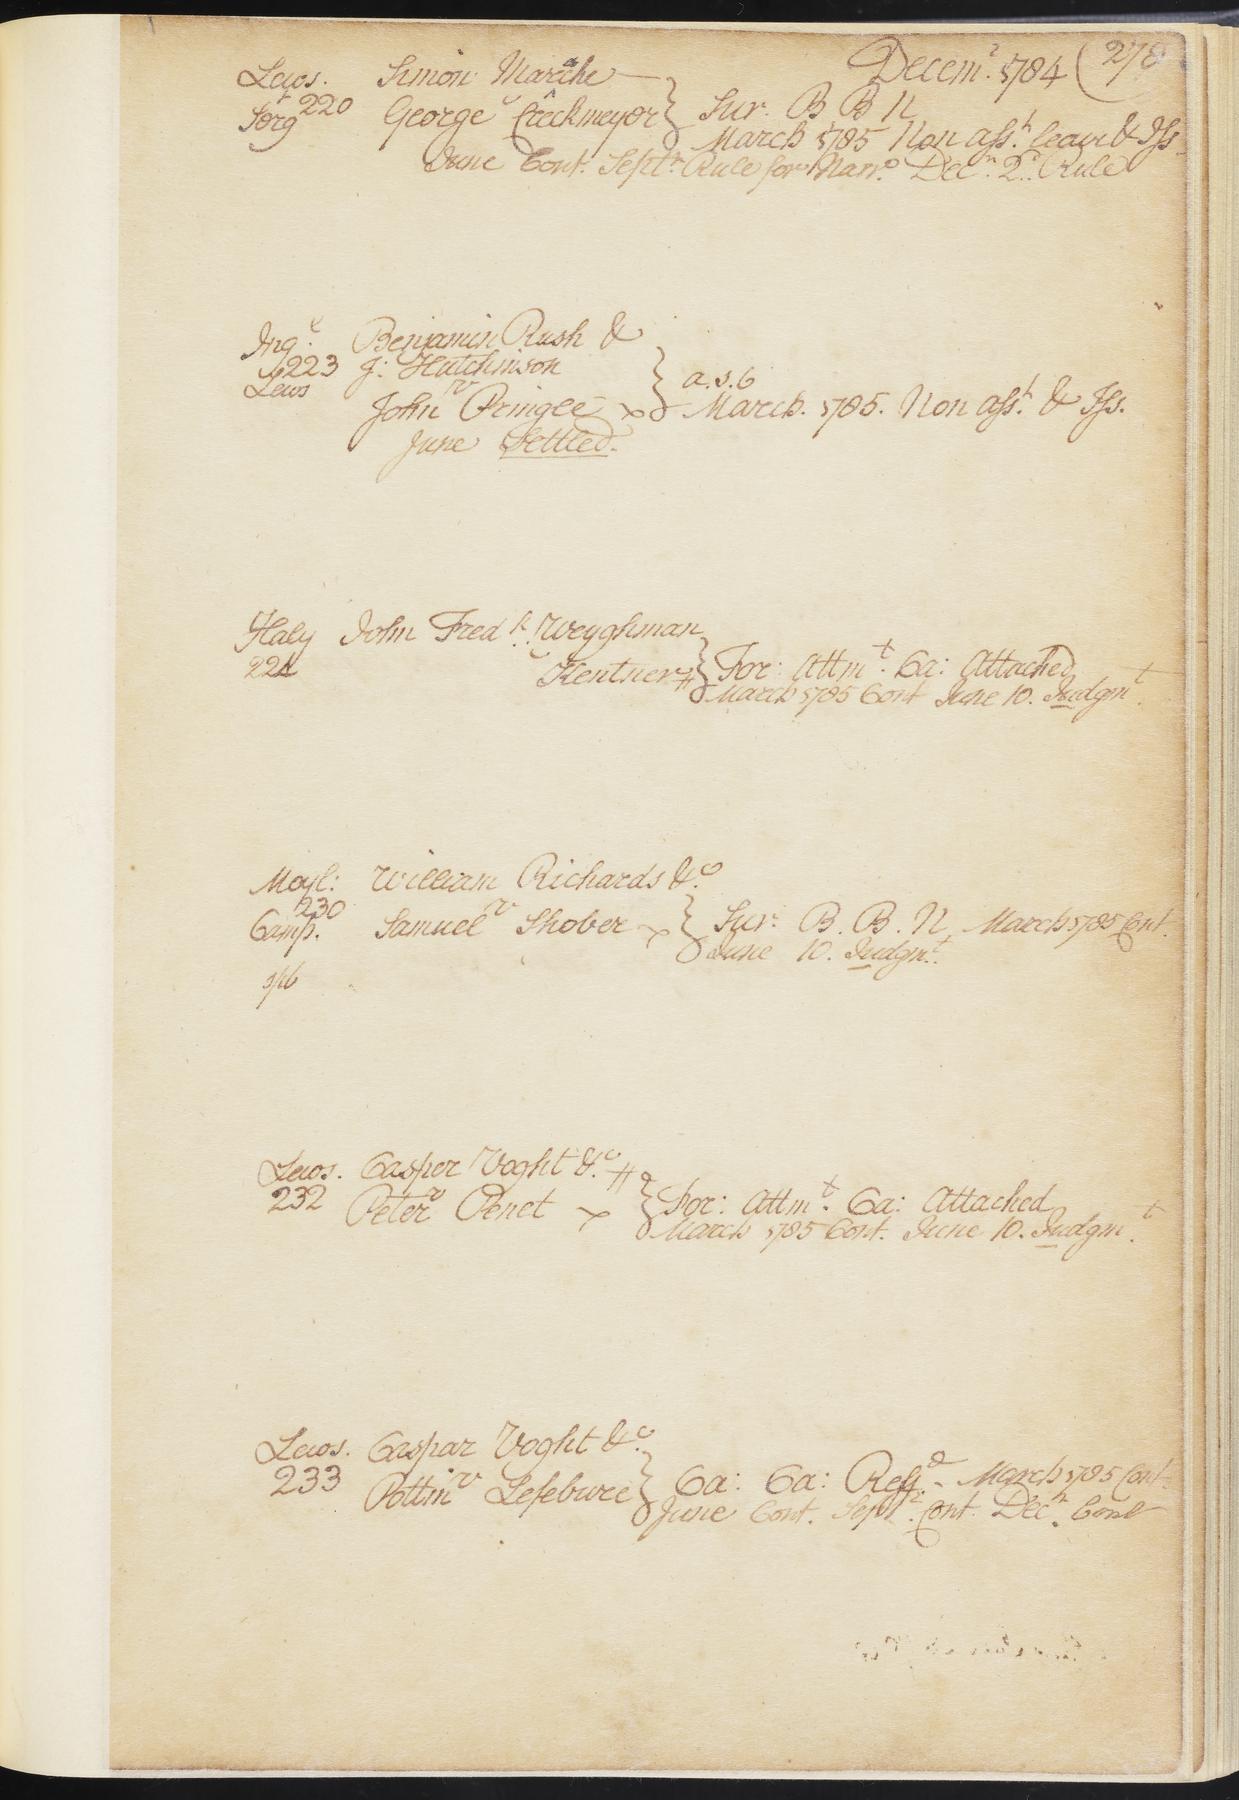 Decem.r 1784 (278
Lews. Simon Marache
Serg.t 220 v
George Creckmeyer } Sur. B B N
March 1785 Non ass.t leave & Iss
June Cont. Sept.r Rule for Narr.o Dec.r 2.d Rule
Ing.l Benjamin Rush &
223 J: Hutchinson
Lews v } a.s.b
John Pringle March. 1785. Non ass.t & Iss.
June Settled.
Haly John Fred.k Weyghman
224 v
Kentner } For: Attm.t Ca: Attached
March 1785 Cont June 10. Judgm.t
Moyl: William Richards & C.o
230 v
Camp. Samuel Shober } Sur: B. B. N March 1785 Cont.
June 10. Judgm.t
Lews. Casper Voght & C.o
232 v
Peter Penet } For: Attm.t Ca: Attached
March 1785 Cont. June 10. Judgm.t
Lews. Caspar Voght & C.o
233 v
Pottin Lefebure } Ca: Ca: Ref.d March 1785 Cont
June Cont. Sept.r Cont. Dec.r Cont